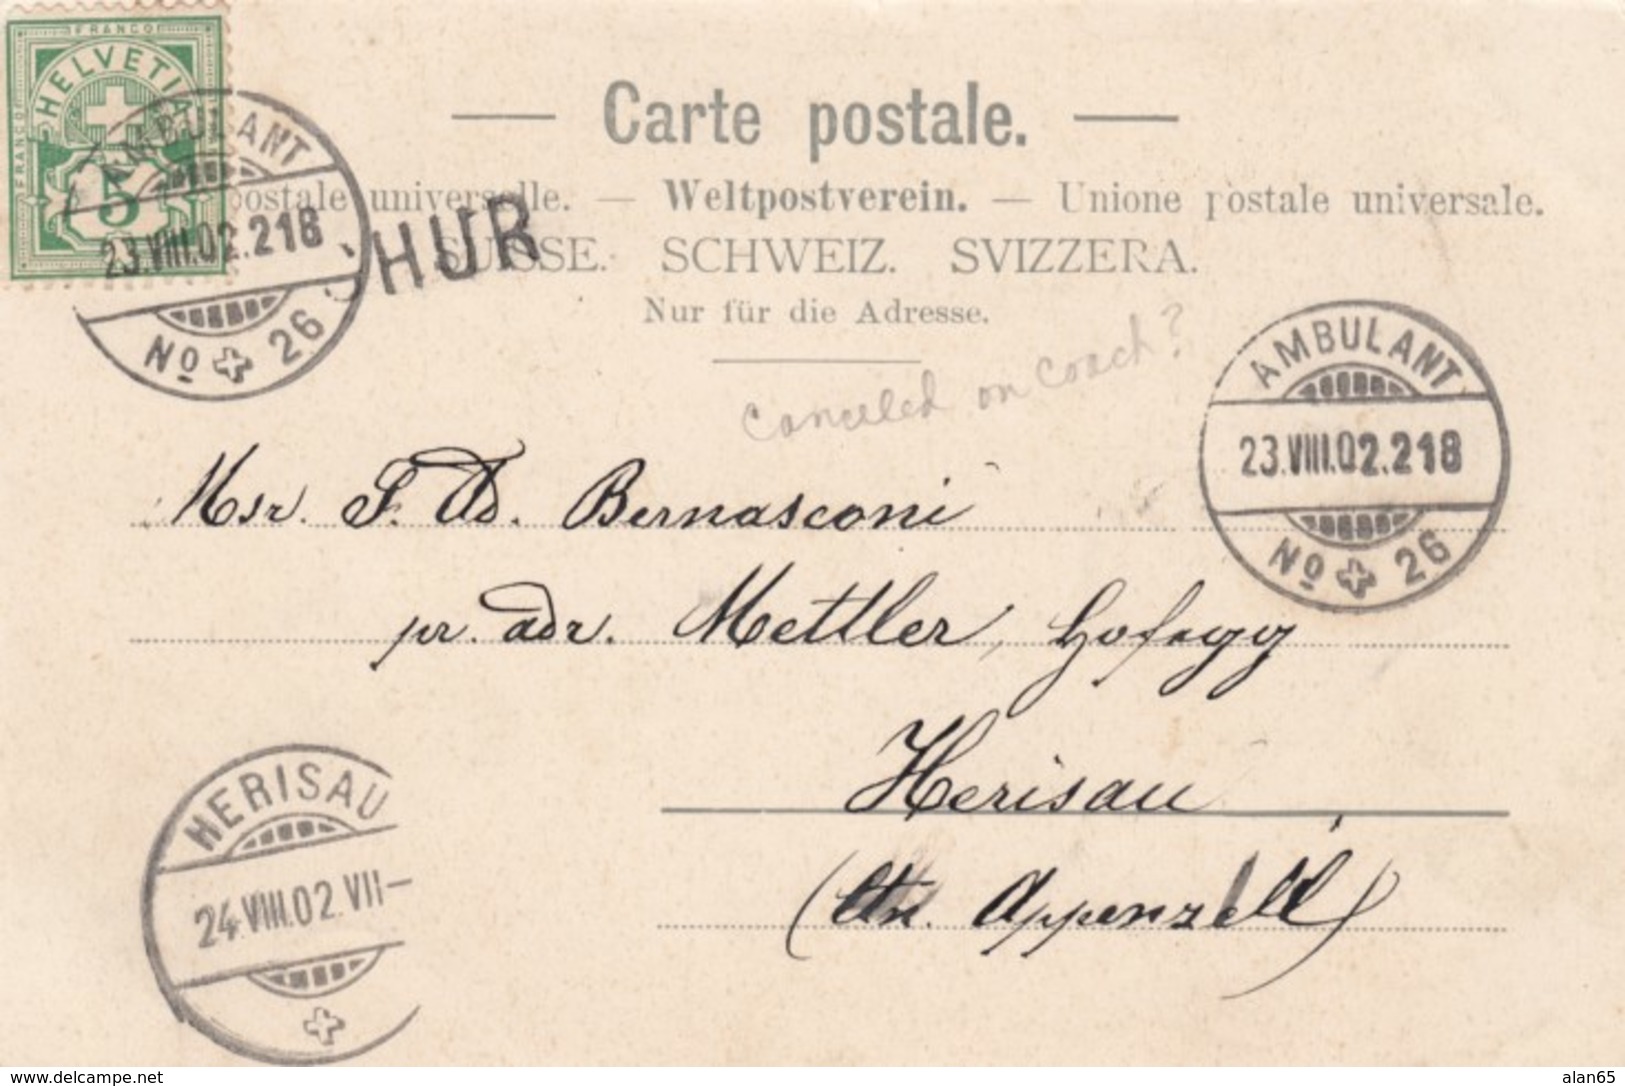 FRANCO
HELVETIA
FRANCO
5
AMBULANT
23.VIII.02.218
No 26
CHUR
Carte postale.
postale universelle. — Weltpostverein. — Unione postale universale.
SUISSE. SCHWEIZ. SVIZZERA.
Nur für die Adresse.
Canceled on Coach?
AMBULANT
23.VIII.02.218
No 26
Msr. F. Ad. Bernasconi
pr. adr. Mettler, Hofegg
Herisau
(Ctn. Appenzell)
HERISAU
24.VIII.02.VII—
www.delcampe.net
alan65